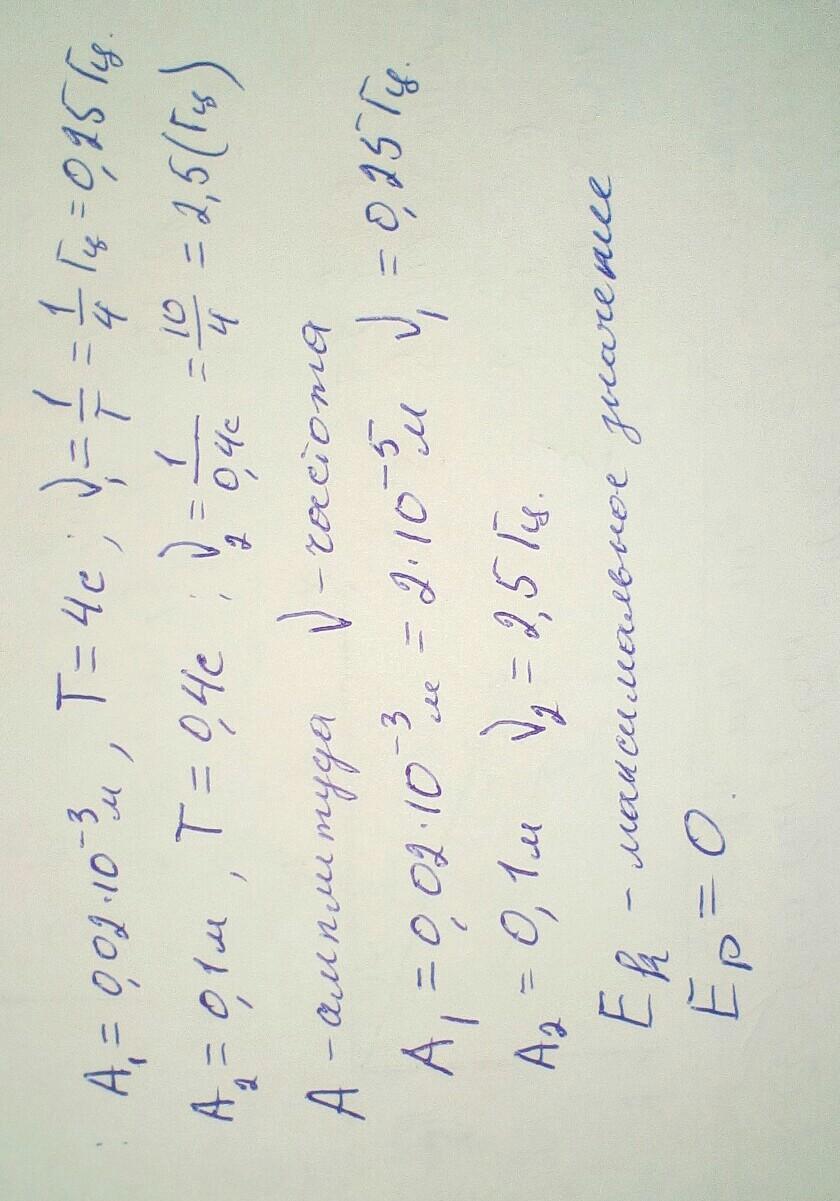 A₁ = 0,02·10⁻³м, T = 4с; ν₁ = 1/T = 1/4 Гц = 0,25 Гц.
A₂ = 0,1м, T = 0,4с; ν₂ = 1/0,4с = 10/4 = 2,5(Гц)
A – амплитуда ν – частота
A₁ = 0,02·10⁻³м = 2·10⁻⁵м ν₁ = 0,25 Гц.
A₂ = 0,1м ν₂ = 2,5 Гц.
Eₖ – максимальное значение
Eₚ = 0.